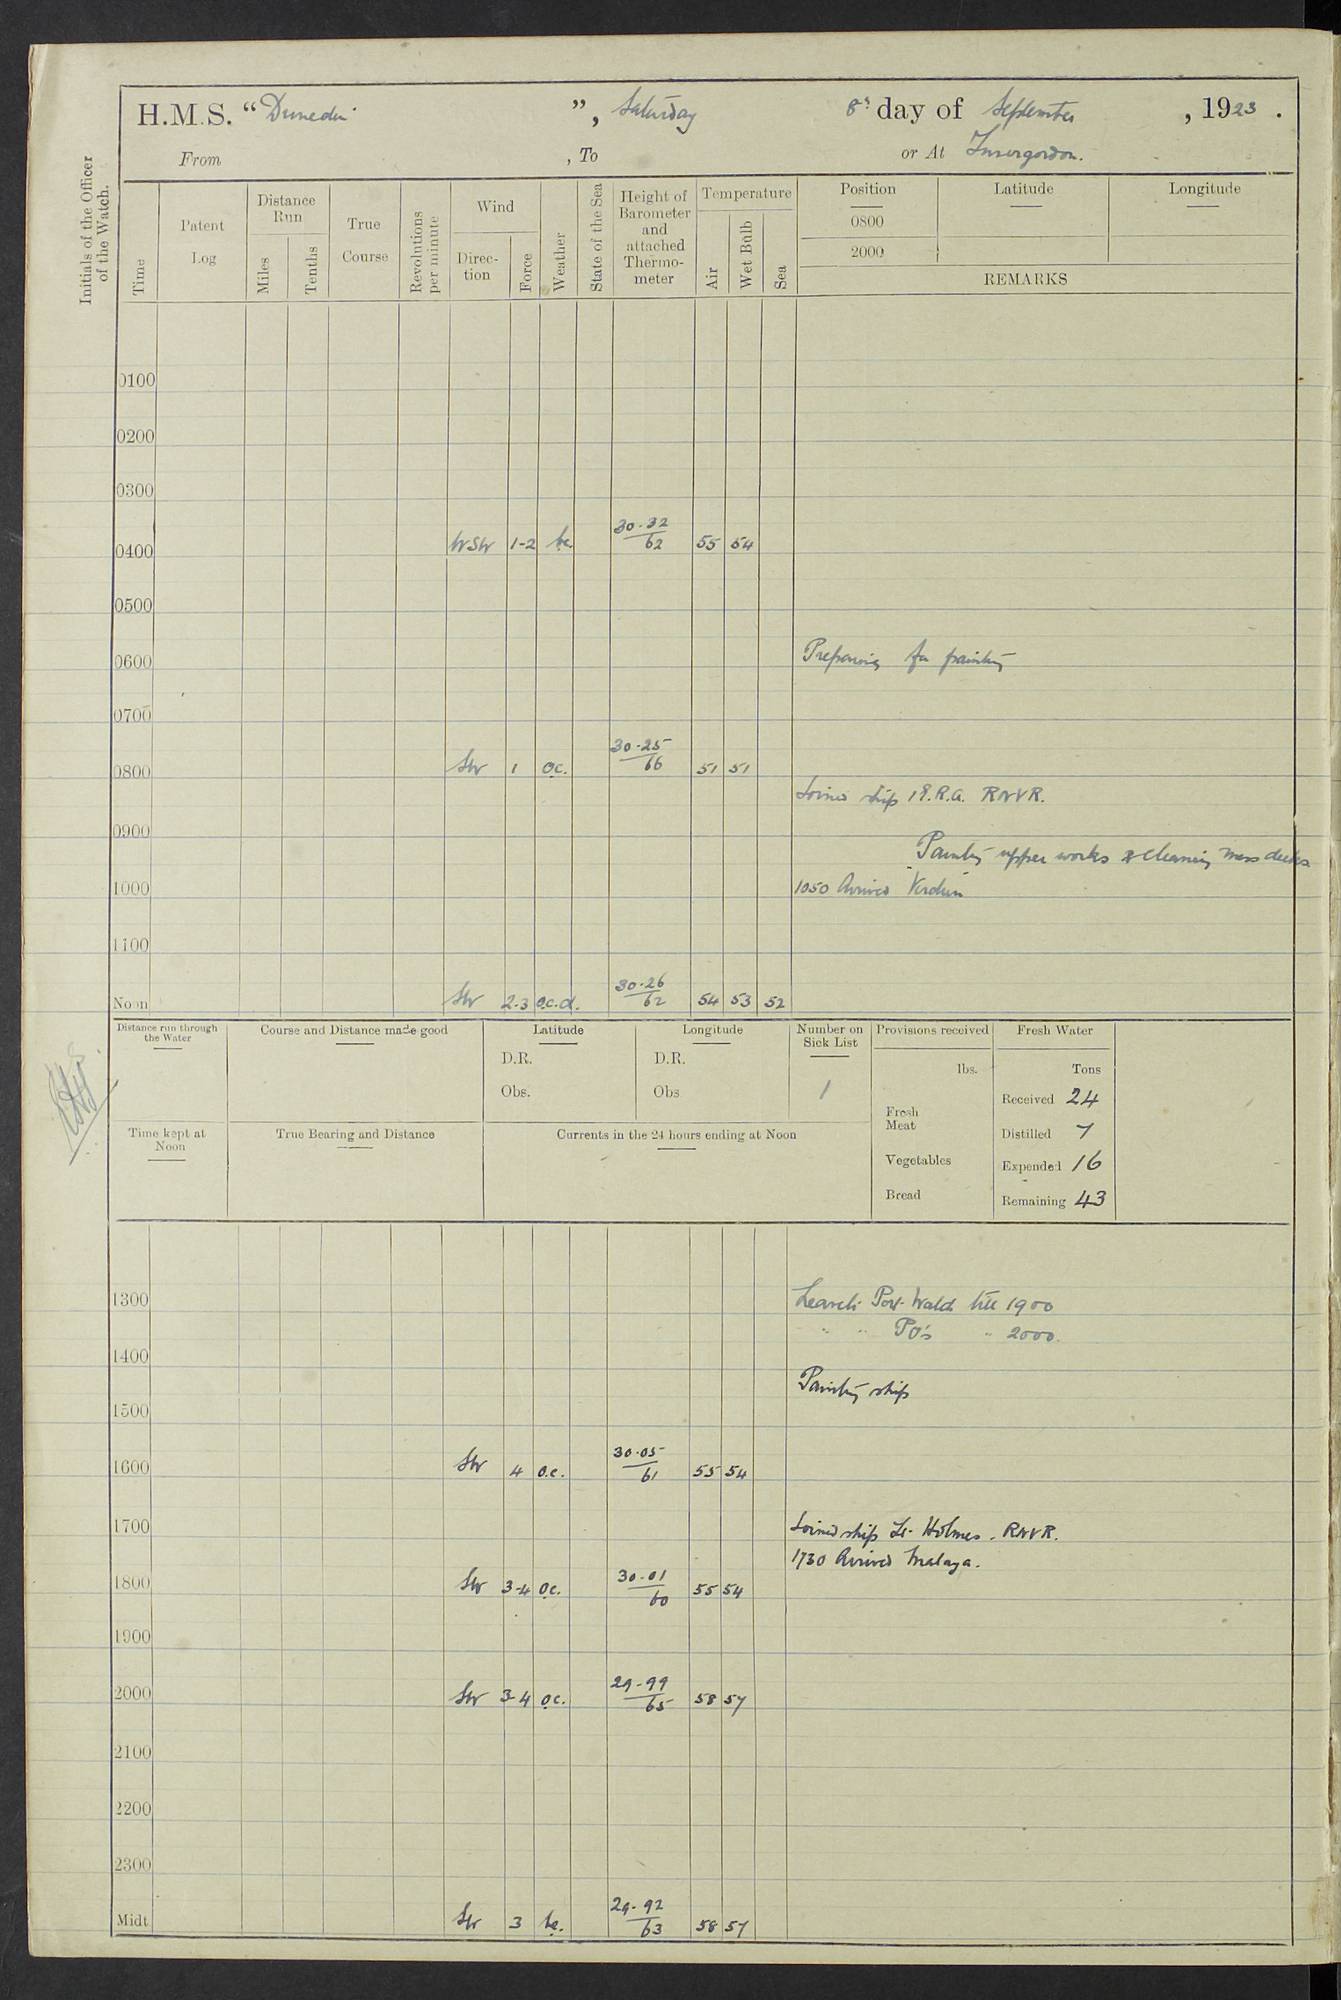 H.M.S. "Dunedin", Saturday 8th day of September, 1923.
From , To or At Invergordon.
Initials of the Officer of the Watch.
Time
Patent Log
Distance Run
Miles
Tenths
True Course
Revolutions per minute
Wind
Direction
Force
Weather
State of the Sea
Height of Barometer and attached Thermometer
Temperature
Air
Wet Bulb
Sea
Position Latitude Longitude
0800
2000
REMARKS
0100
0200
0300
0400 WSW 1-2 bc. 30.32/62 55 54
0500
0600 Preparing for painting
0700
0800 SW 1 oc. 30.25/66 51 51
Joined ship 1 E.R.A. RNVR.
0900
Painting upper works & cleaning mess decks
1000 1050 Arrived "Verdun"
1100
Noon SW 2-3 o.c.d. 30.26/62 54 53 52
Distance run through the Water
Course and Distance made good
Latitude
D.R.
Obs.
Longitude
D.R.
Obs
Number on Sick List
1
Provisions received
lbs.
Fresh Meat
Vegetables
Bread
Fresh Water
Tons
Received 24
Distilled 7
Expended 16
Remaining 43
Time kept at Noon
True Bearing and Distance
Currents in the 24 hours ending at Noon
1300 Leave to Port Watch till 1900
" " PO's " 2000.
1400
Painting ship
1500
1600 SW 4 o.c. 30.05/61 55 54
1700 Joined ship Lt. Holmes. RNVR.
1730 Arrived Malaya.
1800 SW 3-4 oc. 30.01/60 55 54
1900
2000 SW 3-4 oc. 29.99/65 58 57
2100
2200
2300
Midt SW 3 bc. 29.92/63 58 57